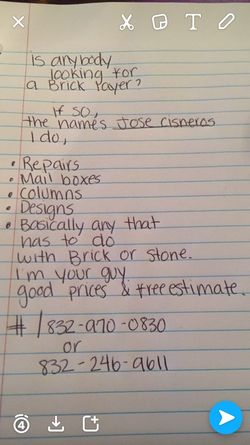 Is anybody
looking for
a Brick layer?
If so,
the name's Jose Cisneros
I do,
• Repairs
• Mail boxes
• Columns
• Designs
• Basically any that
has to do
with Brick or stone.
I'm your guy.
good prices & free estimate.
# | 832-970-0830
or
832-246-9611